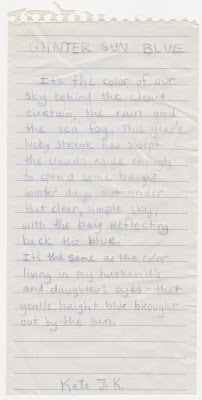 WINTER SUN BLUE
It's the color of our
sky behind the cloud
curtain, the rain and
the sea fog. This year's
lucky streak has swept
the clouds aside enough
to spend some bright
winter days out under
that clear, simple sky,
with the bay reflecting
back the blue.
It's the same as the color
living in my husband's
and daughter's eyes - that
gentle, bright blue brought
out by the sun.
Kate J. K.